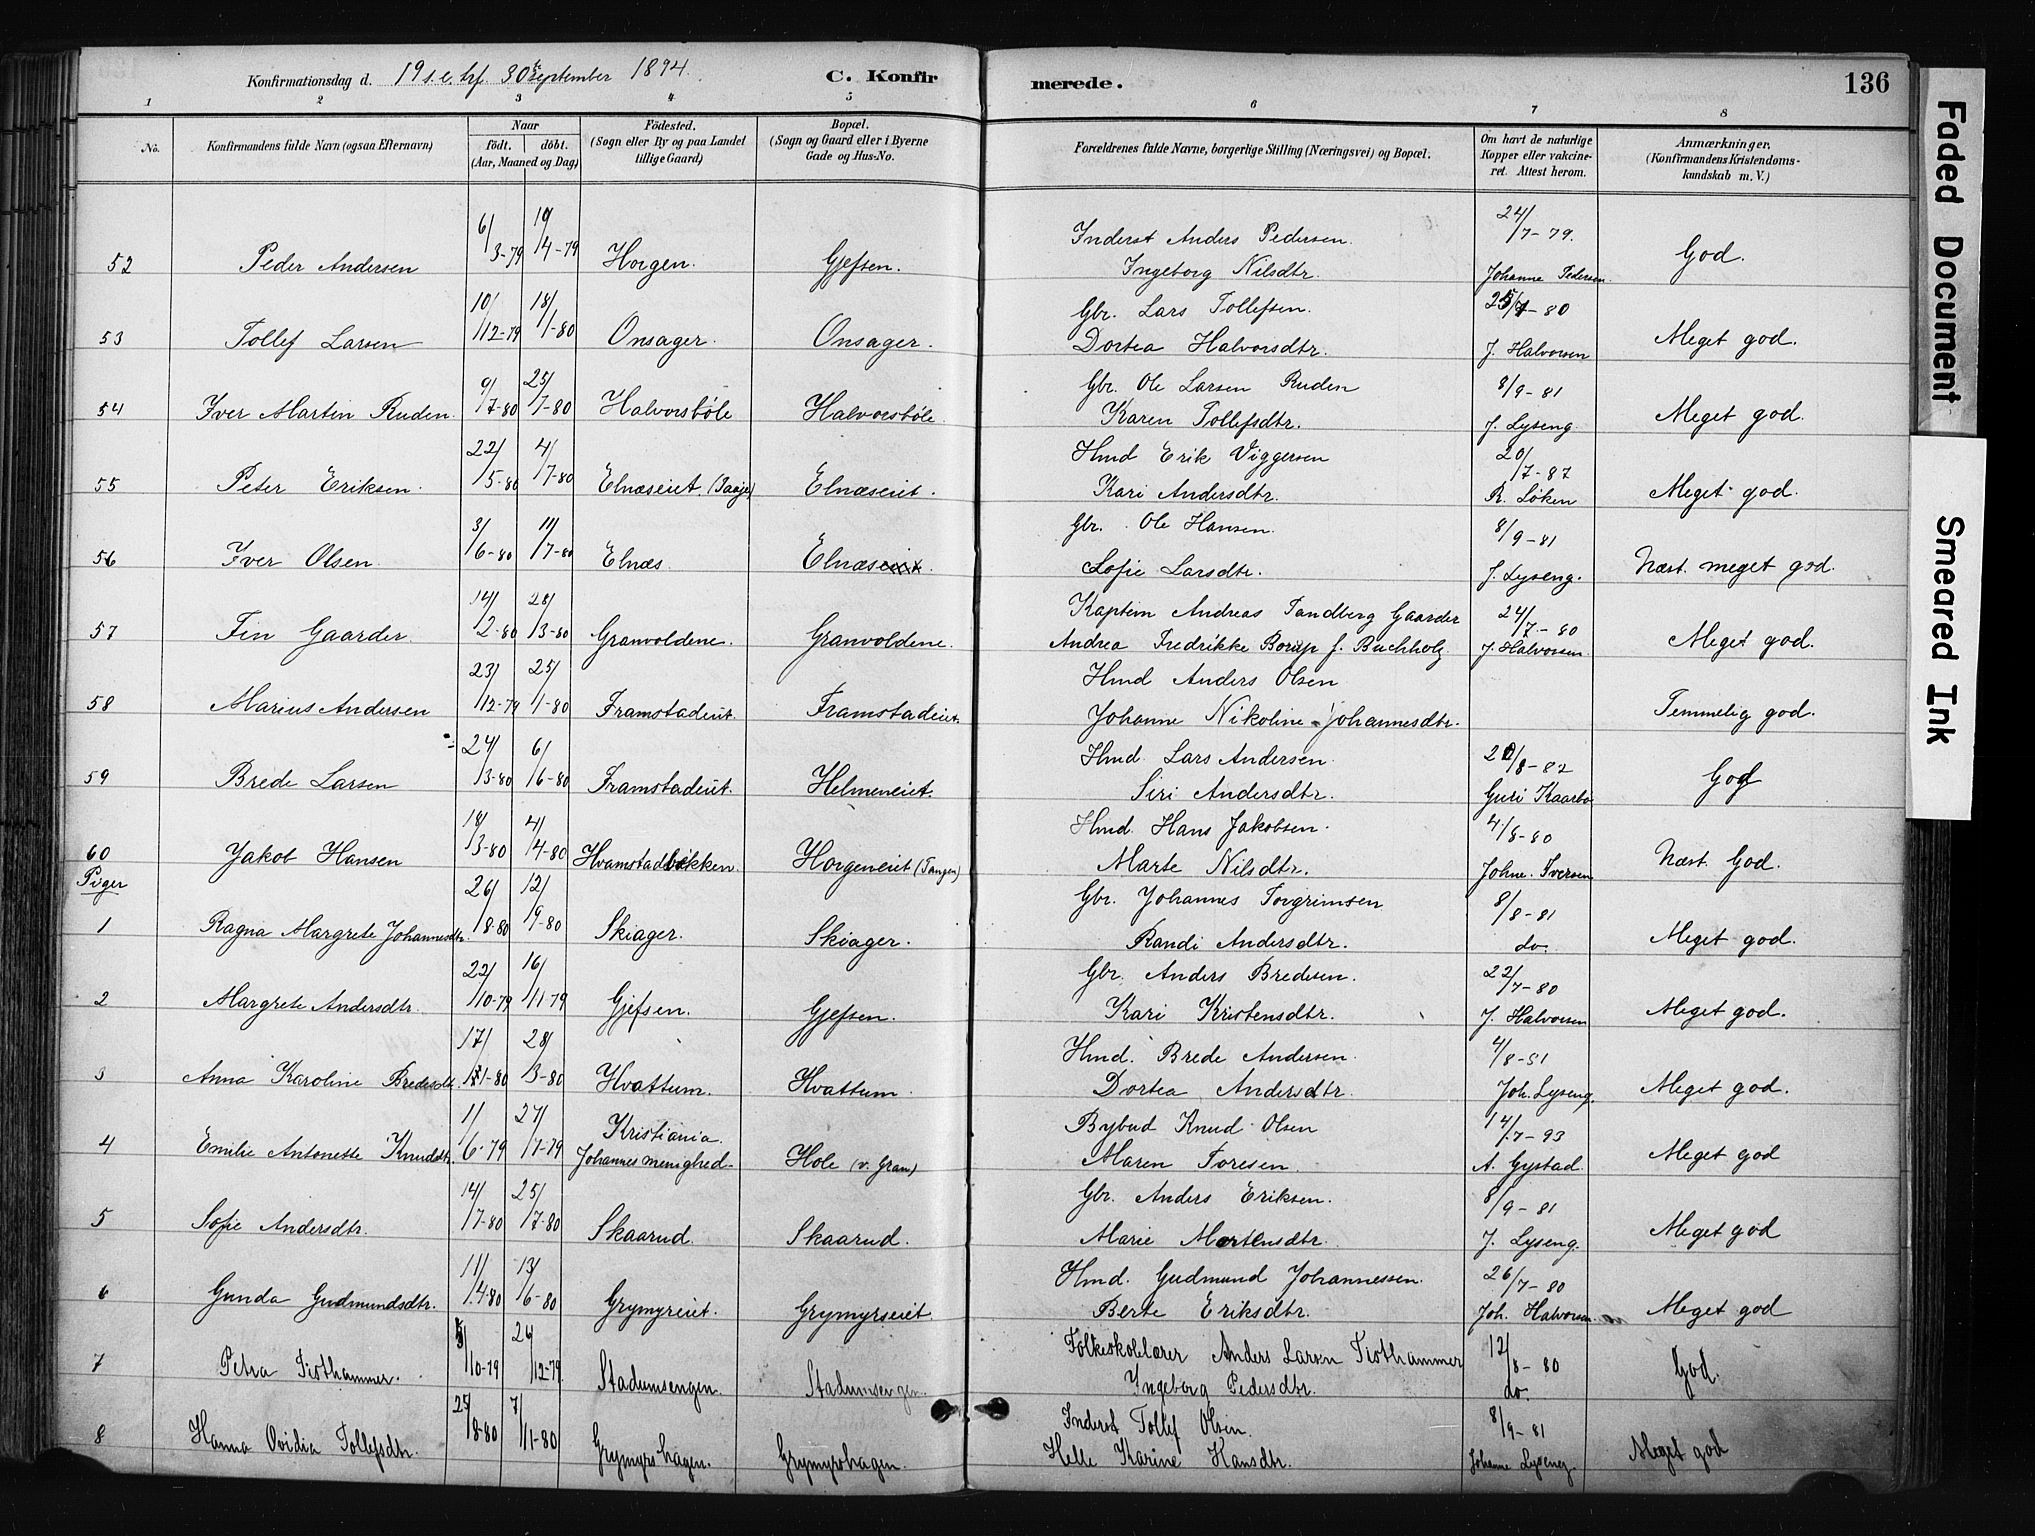 Konfirmationsdag d. 19 s. e. trf. 30te September 1894.
C. Konfirmerede.
136
1 2 3 4 5 6 7 8
No.
Konfirmandens fulde Navn (ogsaa Efternavn)
Naar
födt. döbt.
(Aar, Maaned og Dag)
Födested.
(Sogn eller By og paa Landet
tillige Gaard)
Bopæl.
(Sogn og Gaard eller i Byerne
Gade og Hus-No.
Forældrenes fulde Navne, borgerlige Stilling (Næringsvei) og Bopæl.
Om havt de naturlige
Kopper eller vakcine-
ret. Attest herom.
Anmærkninger.
(Konfirmandens Kristendoms-
kundskab m. V.)
52 Peder Andersen 6/3-79 19/4-79 Horgen. Gjefsen. Inderst Anders Pedersen. 24/7-79. God.
Ingeborg Nilsdtr. Johanne Pedersen.
53 Tollef Larsen 10/12-79 18/1-80 Onsager. Onsager. Gbr. Lars Tollefsen. 25/7-80 Meget god.
Dortea Halvorsdtr. J. Halvorsen
54 Iver Martin Ruden. 9/7-80 25/7-80 Halvorsböle Halvorsböle. Gbr. Ole Larsen Ruden 8/9-81 Meget god.
Karen Tollefsdtr. J. Lyseng
55 Peter Eriksen. 22/5-80 4/7-80 Elnæseiet Elnæseiet. Hmd Erik Viggersen 20/7-87 Meget god.
Kari Andersdtr. R. Löken
56 Iver Olsen. 3/6-80 11/7-80 Elnæs Elnæs Gbr. Ole Hansen. 8/9-81 Næst. meget god.
Sofie Larsdtr. J. Lyseng.
57 Fin Gaarder 14/2-80 28/3-80 Granvoldene. Granvoldene. Kaptein Andreas Tandberg Gaarder 24/7-80 Meget god.
Andrea Fredrikke Borup f. Buchholz J. Halvorsen.
58 Marius Andersen 23/12-79 25/1-80 Framstadeiet. Framstadeiet. Hmd Anders Olsen Temmelig god.
Johanne Nikoline Johannesdtr.
59 Brede Larsen 24/3-80 6/6-80 Framstadeiet. Helmeneiet. Hmd. Lars Andersen. 20/8-82 God
Siri Andersdtr. Guri Kaarbö
60 Jakob Hansen 18/3-80 4/4-80 Hvamstadbökken. Horgeneiet (Tangen) Hmd. Hans Jakobsen. 4/8-80 Næst. God.
Marte Nilsdtr. Johne. Iversen
Piger
1 Ragna Margrete Johannesdtr. 26/8-80 12/9-80 Skiager. Skiager. Gbr. Johannes Torgrimsen 8/8-81 Meget god.
Randi Andersdtr. do.
2 Margrete Andersdtr. 22/10-79 16/11-79 Gjefsen. Gjefsen. Gbr. Anders Bredesen. 22/7-80 Meget god.
Kari Kristensdtr. J. Halvorsen
3 Anna Karoline Bredesdtr. 17/1-80 28/3-80 Hvattum. Hvattum. Hmd. Brede Andersen. 4/8-81 Meget god.
Dortea Andersdtr. Joh. Lyseng.
4 Emilie Antonette Knudsdtr. 11/6-79 27/7-79 Kristiania. Johannes menighed Hole (v. Gran) Bybud Knud Olsen 14/7-93 Meget god
Maren Toresen. A. Gystad.
5 Sofie Andersdtr. 14/7-80 25/7-80 Skaarud. Skaarud. Gbr. Anders Eriksen. 8/9-81 Meget god
Marie Mortensdtr. J. Lyseng.
6 Gunda Gudmundsdtr. 11/4-80 13/6-80 Grymyreiet. Grymyrseiet. Hmd. Gudmund Johannessen. 26/7-80 Meget god
Berte Eriksdtr. Joh. Halvorsen.
7 Petra Tiothammer. 5/10-79 26/12-79 Stadumsengen. Stadumsengen. Folkeskolelærer Anders Larsen Tiothammer 12/8-80 God.
Ingeborg Pedersdtr. do.
8 Hanna Ovidia Tollefsdtr. 25/8-80 7/11-80 Grymyrshagen. Grymyrshagen. Inderst Tollef Olsen. 8/9-81 Meget god
Helle Karine Hansdtr. Johanne Lyseng.
Faded Document
Smeared Ink